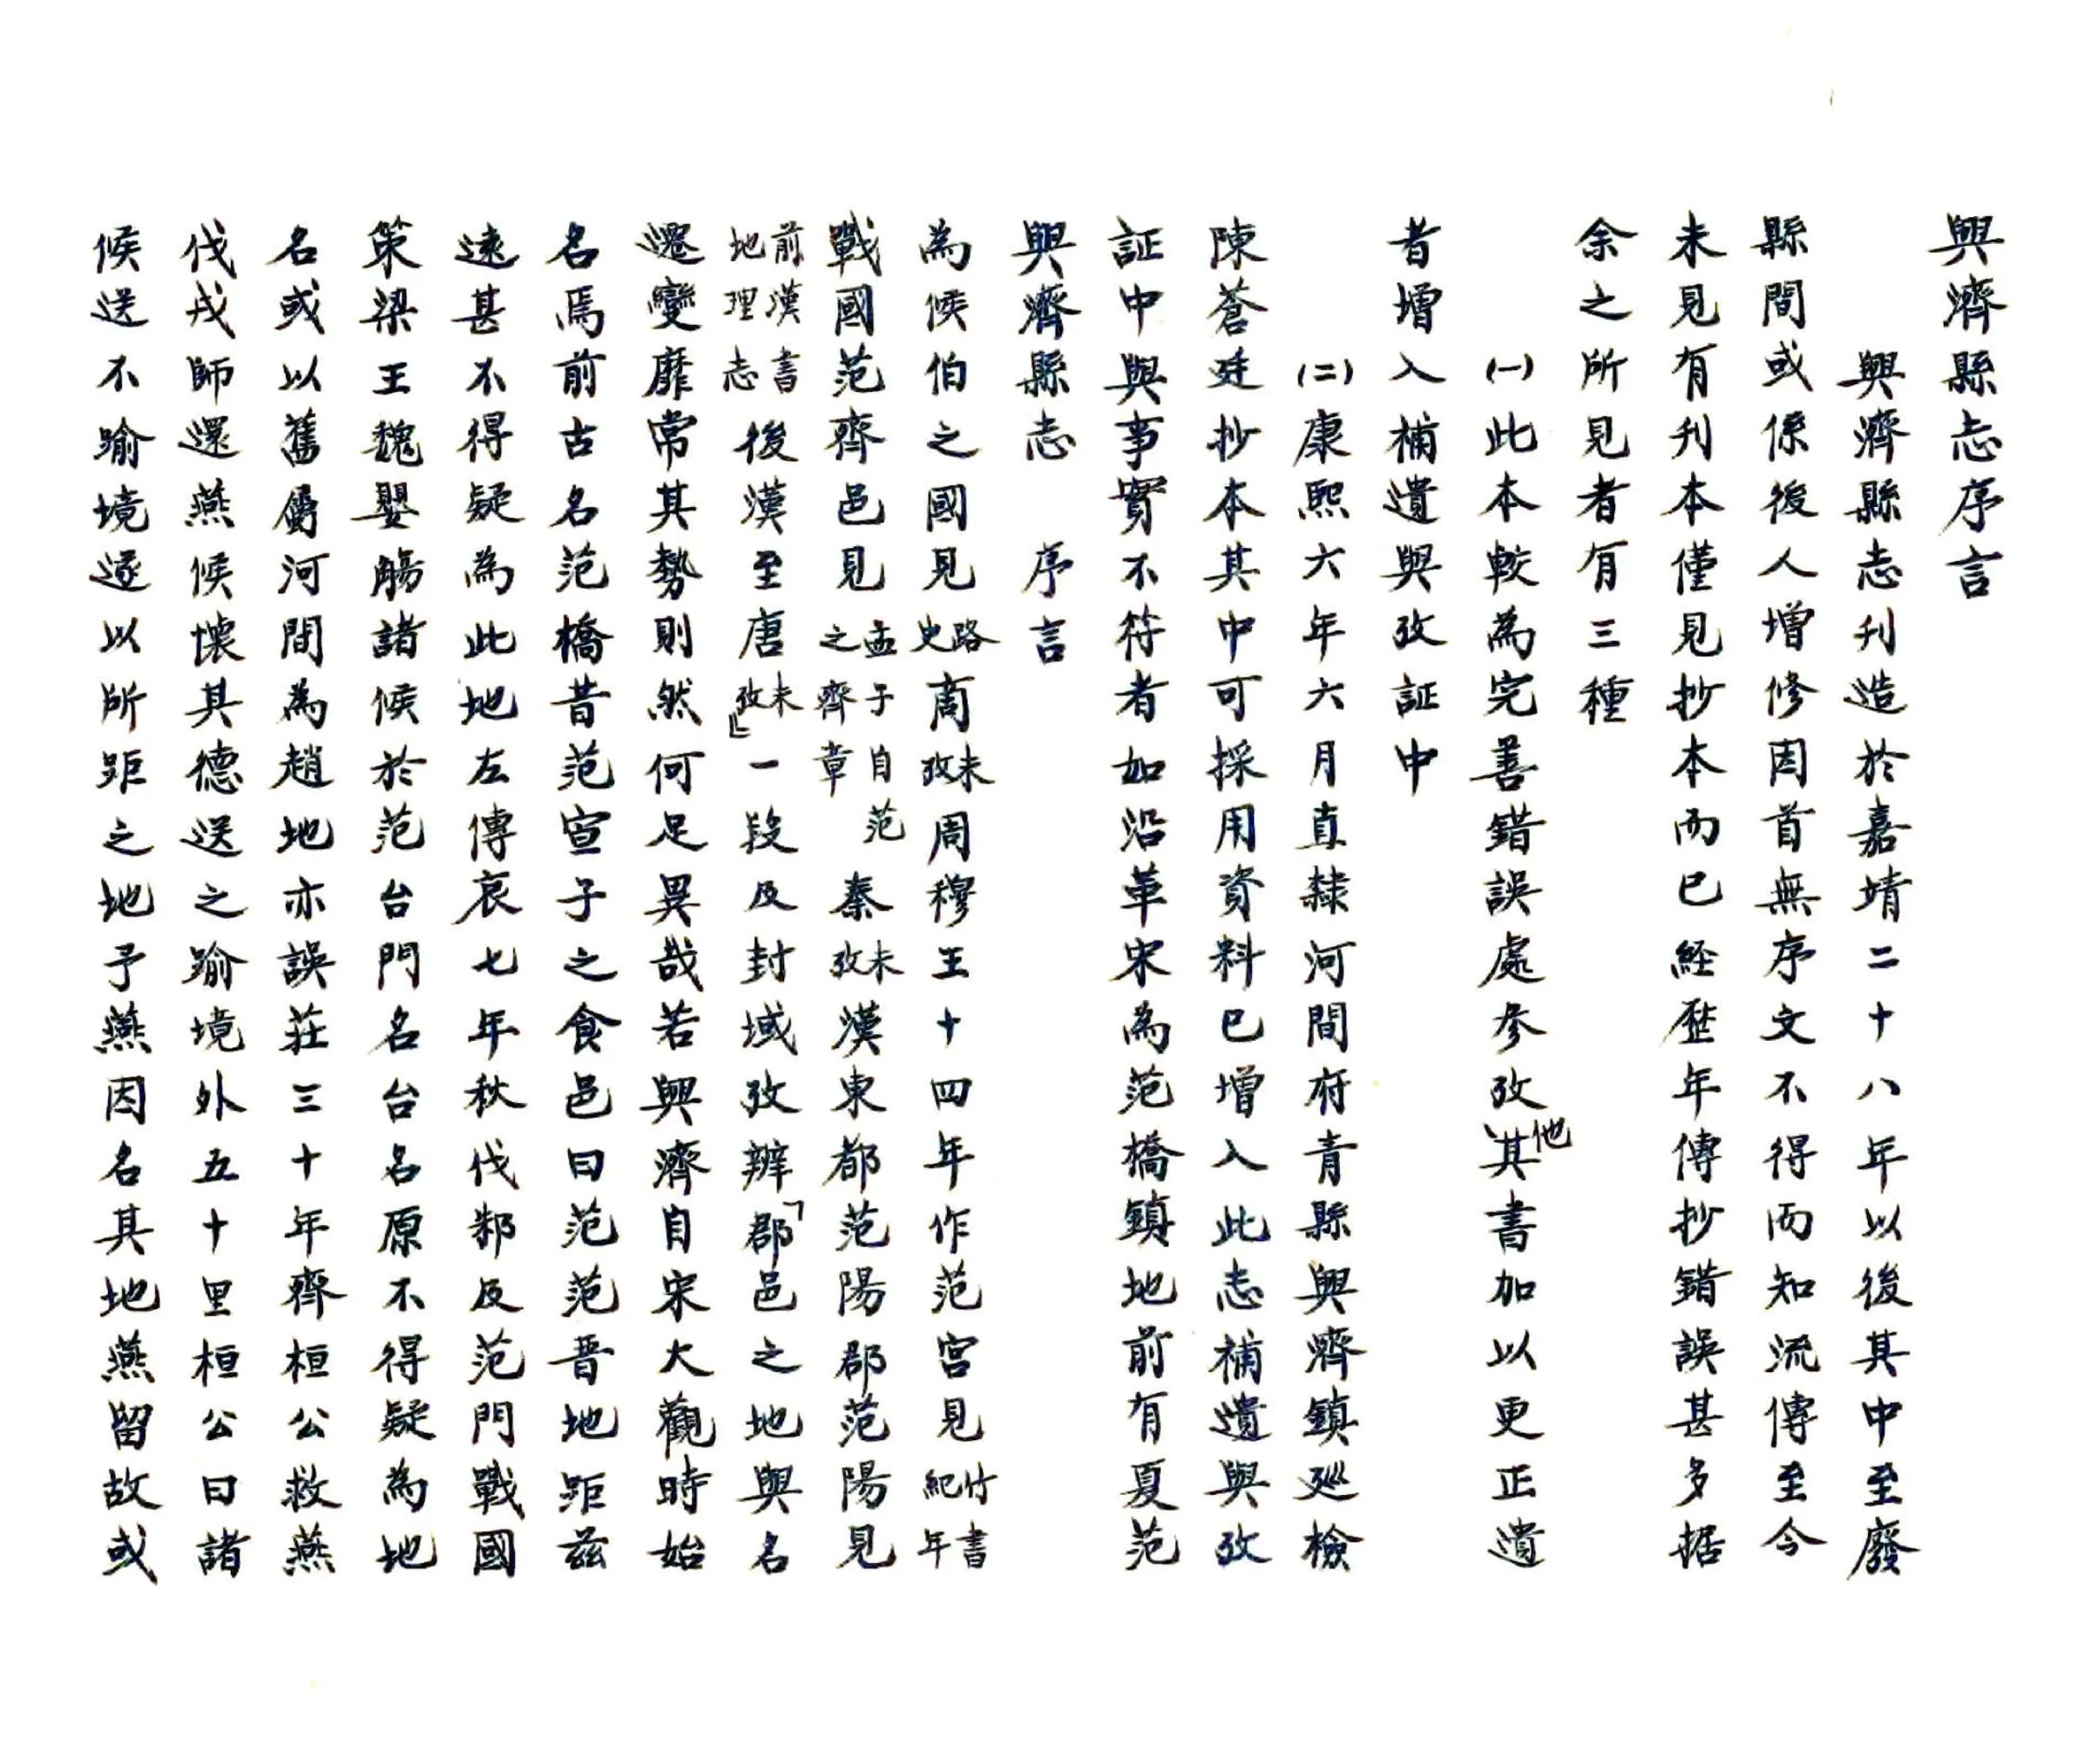 興濟縣志序言
興濟縣志刋造於嘉靖二十八年以後其中至廢
縣間或係後人增修因首無序文不得而知流傳至今
未見有刋本僅見抄本而已經歷年傳抄錯誤甚多据
余之所見者有三種
(一)此本較為完善錯誤處参攷其他書加以更正遺
者增入補遺與攷証中
(二)康熙六年六月直隸河間府青縣興濟鎮廵檢
陳蒼廷抄本其中可採用資料已增入此志補遺與攷
証中與事實不符者如沿革宋為范橋鎮地前有夏范
興濟縣志　序言
為候伯之國見路史商未攷周穆王十四年作范宮見竹書紀年
戰國范齊邑見孟子自范之齊章秦未攷漢東都范陽郡范陽見
前漢書地理志後漢至唐未攷』一段及封域攷辨「郡邑之地與名
遷變靡常其勢則然何足異哉若興濟自宋大觀時始
名焉前古名范橋昔范宣子之食邑曰范范晋地距茲
遠甚不得疑為此地左傳哀七年秋伐邾及范門戰國
策梁王魏嬰觴諸候於范台門名台名原不得疑為地
名或以舊屬河間為趙地亦誤莊三十年齊桓公救燕
伐戎師還燕候懷其德送之踰境外五十里桓公曰諸
候送不踰境遂以所距之地予燕因名其地燕留故或